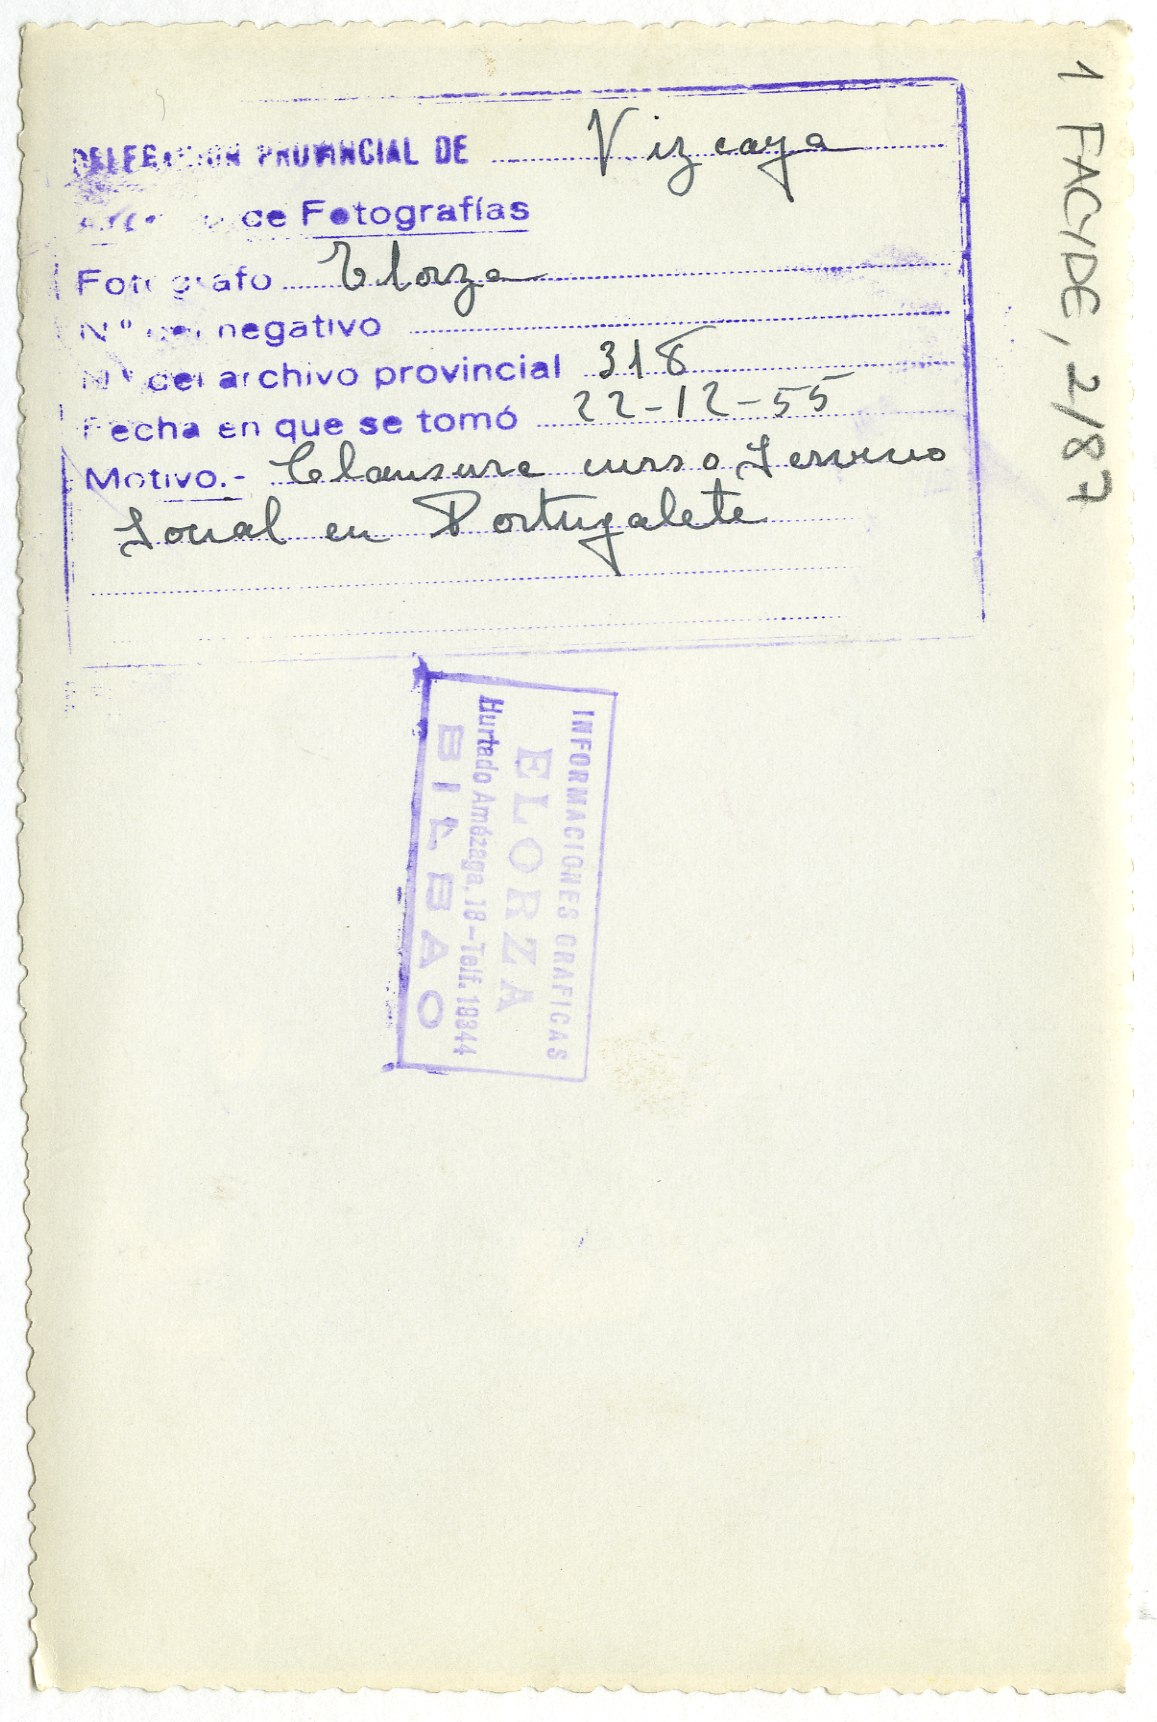 DELEGACION PROVINCIAL DE Vizcaya
de Fotografías
Fotografo Elorza
Nº del negativo
Nº del archivo provincial 318
Fecha en que se tomó 22-12-55
Motivo.- Clausura curso Servicio
Social en Portugalete
1 FACYDE, 2/87
INFORMACIONES GRAFICAS
ELORZA
Hurtado Amézaga, 18-Telf. 18344
BILBAO